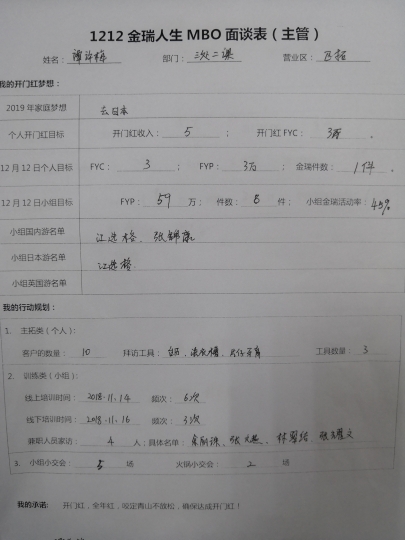 1212金瑞人生MBO面谈表（主管）
姓名： 部门：三次二课 营业区：
我的开门红梦想：
2019年家庭梦想 去日本
个人开门红目标 开门红收入：5； 开门红FYC：3万。
12月12日个人目标 FYC：3； FYP：3万； 金瑞件数：1件。
12月12日小组目标 FYP：59万； 件数：8件； 小组金瑞活动率：45%
小组国内游名单 江选格、张锦
小组日本游名单 江选格
小组英国游名单
我的行动规划：
1. 主拓类（个人）：
客户的数量：10 拜访工具： 工具数量：3
2. 训练类（小组）：
线上培训时间：2018.11.14 频次：6次
线下培训时间：2018.11.16 频次：3次
兼职人员家访：4人；具体名单：
3. 小组小交会：5场 火锅小交会：2场
我的承诺： 开门红，全年红，咬定青山不放松，确保达成开门红！